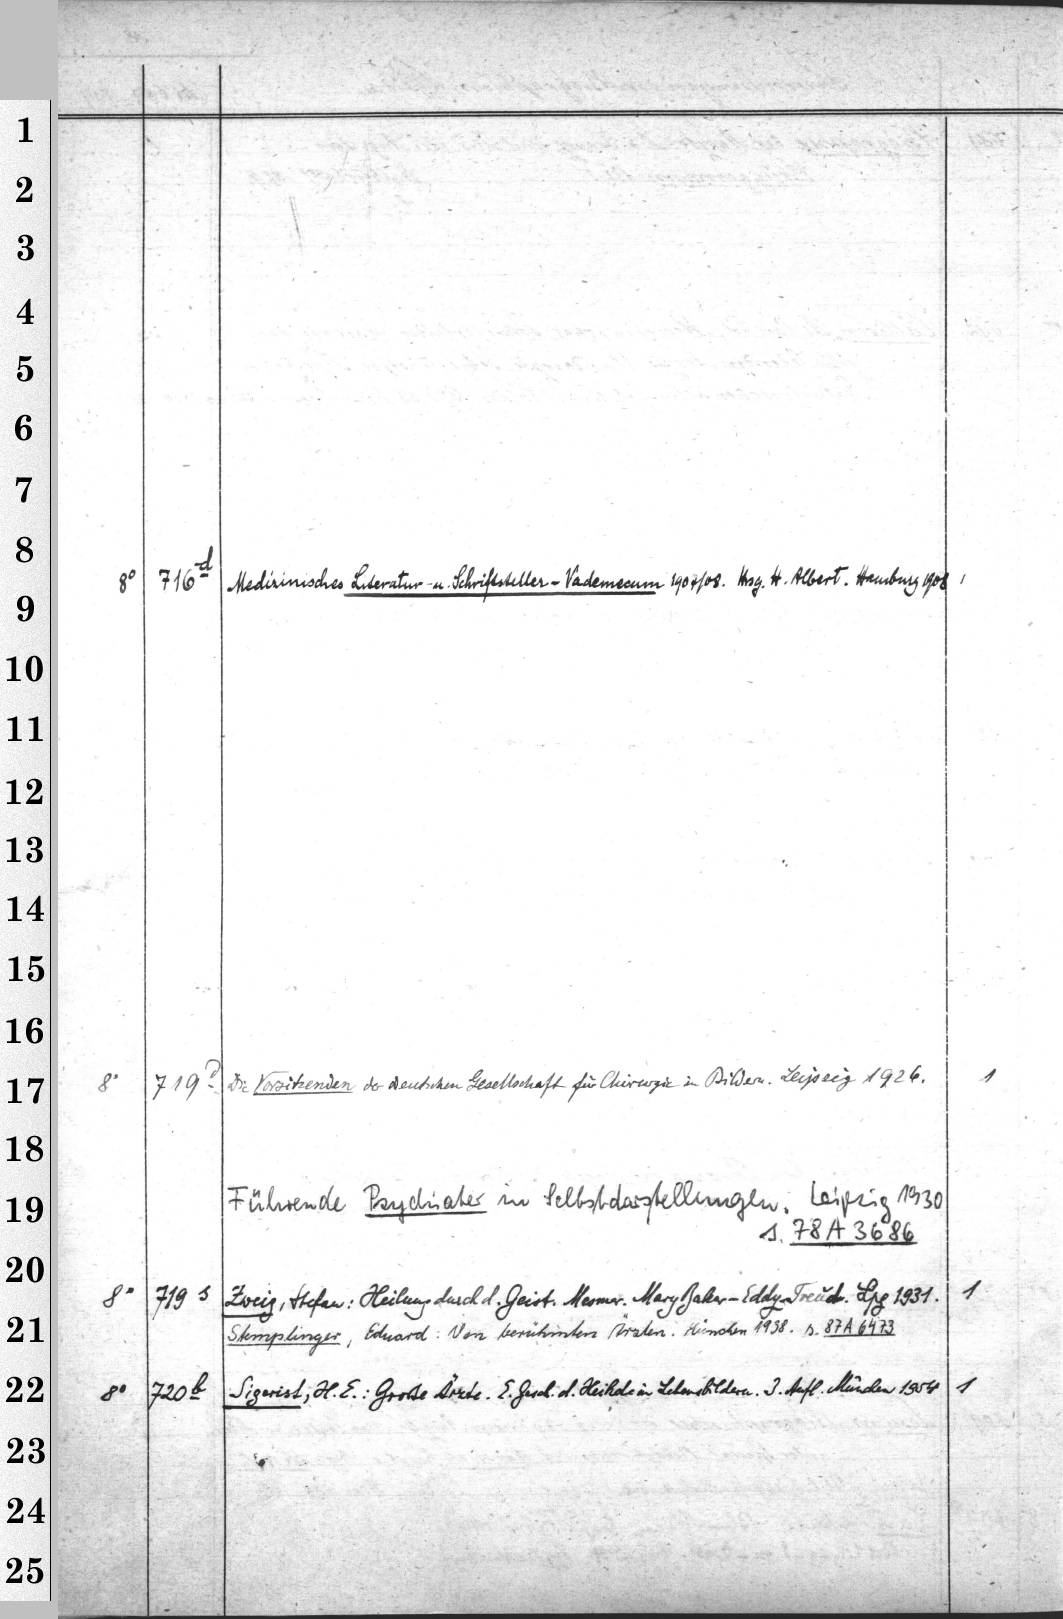 1
2
3
4
5
6
7
8
8° 716 d Medizinisches Literatur- u. Schriftsteller-Vademecum 1907/08. Hrsg. H. Albert. Hamburg 1908 1
9
10
11
12
13
14
15
16
8° 719 Die Vorsitzenden der Deutschen Gesellschaft für Chirurgie in Bildern. Leipzig 1926. 1
17
18
Führende Psychiater in Selbstdarstellungen. Leipzig 1930
19
s. 78 A 3686
20
8° 719 s Zweig, Stefan: Heilung durch d. Geist. Mesmer. Mary Baker-Eddy. Freud. Lpg 1931. 1
21
Stemplinger, Eduard: Von berühmten Ärzten. München 1938. s. 87 A 6473
22
8° 720 b Sigerist, H. E.: Große Ärzte. E. Gesch. d. Heilkde in Lebensbildern. 3. Aufl. München 1954 1
23
24
25